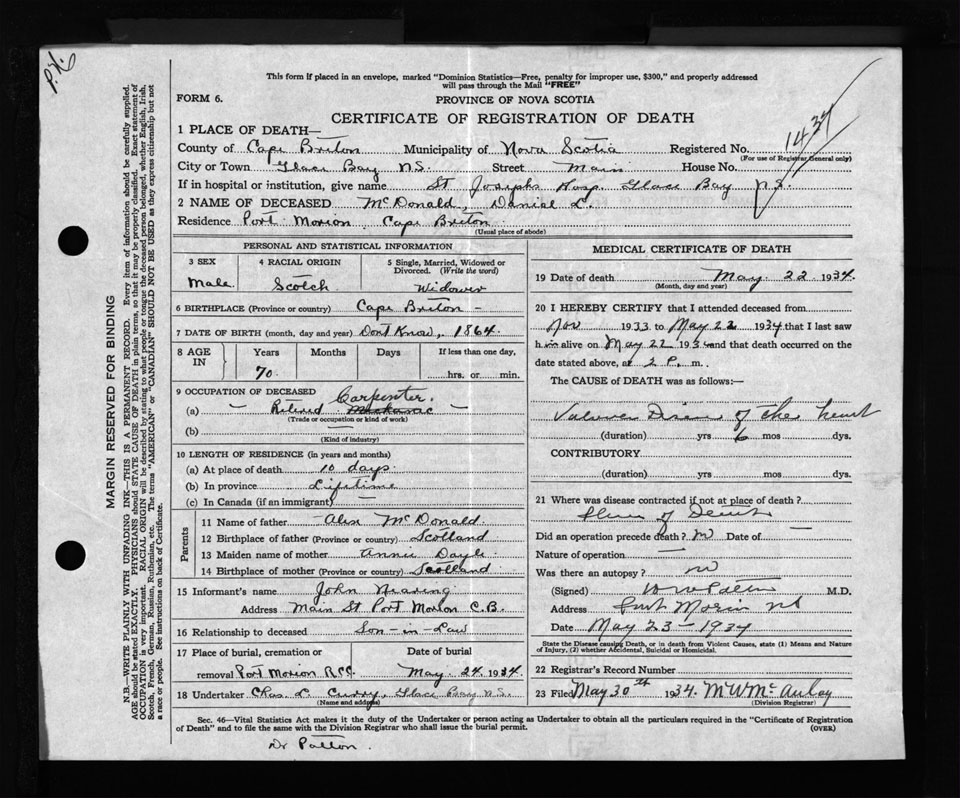 P.X.
This form if placed in an envelope, marked "Dominion Statistics—Free, penalty for improper use, $300," and properly addressed
will pass through the Mail "FREE"
FORM 6.
PROVINCE OF NOVA SCOTIA
CERTIFICATE OF REGISTRATION OF DEATH
1437
1 PLACE OF DEATH—
County of Cape Briton Municipality of Nova Scotia Registered No.
(For use of Registrar General only)
City or Town Glace Bay N.S. Street Main House No.
If in hospital or institution, give name St Josephs Hosp. Glace Bay N.S.
2 NAME OF DECEASED McDonald, Daniel L.
Residence Port Morion Cape Briton
(Usual place of abode)
MARGIN RESERVED FOR BINDING
N.B.—WRITE PLAINLY WITH UNFADING INK—THIS IS A PERMANENT RECORD. Every item of information should be carefully supplied.
AGE should be stated EXACTLY. PHYSICIANS should STATE CAUSE OF DEATH in plain terms, so that it may be properly classified. Exact statement of
OCCUPATION is very important. RACIAL ORIGIN will be described by stating to what people or tongue the deceased person belonged, whether English, Irish,
Scotch, French, German, Russian, Ruthenian, etc. The terms "AMERICAN" or "CANADIAN" SHOULD NOT BE USED as they express citizenship but not
a race or people. See instructions on back of Certificate.
PERSONAL AND STATISTICAL INFORMATION
3 SEX 4 RACIAL ORIGIN 5 Single, Married, Widowed or
Divorced. (Write the word)
Male Scotch Widower
6 BIRTHPLACE (Province or country) Cape Briton
7 DATE OF BIRTH (month, day and year) Dont Know, 1864
8 AGE IN Years Months Days If less than one day,
70 hrs. or min.
9 OCCUPATION OF DECEASED Carpenter.
(a) Retired Mechanic
(Trade or occupation or kind of work)
(b)
(Kind of industry)
10 LENGTH OF RESIDENCE (in years and months)
(a) At place of death 10 days
(b) In province Lifetime
(c) In Canada (if an immigrant)
Parents
11 Name of father Alex McDonald
12 Birthplace of father (Province or country) Scotland
13 Maiden name of mother Annie Doyle
14 Birthplace of mother (Province or country) Scotland
15 Informant's name John Nearing
Address Main St Port Morion C.B.
16 Relationship to deceased Son-in-Law
17 Place of burial, cremation or Date of burial
removal Port Morion R.C.C. May 24 1934
18 Undertaker Chas. L. Curry, Glace Bay N.S.
(Name and address)
MEDICAL CERTIFICATE OF DEATH
19 Date of death May 22 1934
(Month, day and year)
20 I HEREBY CERTIFY that I attended deceased from
Nov 1933 to May 22 1934 that I last saw
him alive on May 22 193 and that death occurred on the
date stated above, at 2 P. m.
The CAUSE of DEATH was as follows:—
Disease of the heart
(duration) yrs 6 mos dys.
CONTRIBUTORY
(duration) yrs. mos dys.
21 Where was disease contracted if not at place of death?
Place of Death
Did an operation precede death? no Date of
Nature of operation
Was there an autopsy? no
(Signed) Patton M.D.
Address Port Morien NS
Date May 23-1934
State the Disease causing Death, or in death from Violent Causes, state (1) Means and Nature
of Injury, (2) whether Accidental, Suicidal or Homicidal.
22 Registrar's Record Number
23 Filed May 30th 1934. M W McAuley
(Division Registrar)
Sec. 46—Vital Statistics Act makes it the duty of the Undertaker or person acting as Undertaker to obtain all the particulars required in the "Certificate of Registration
of Death" and to file the same with the Division Registrar who shall issue the burial permit. (OVER)
Dr Patton.